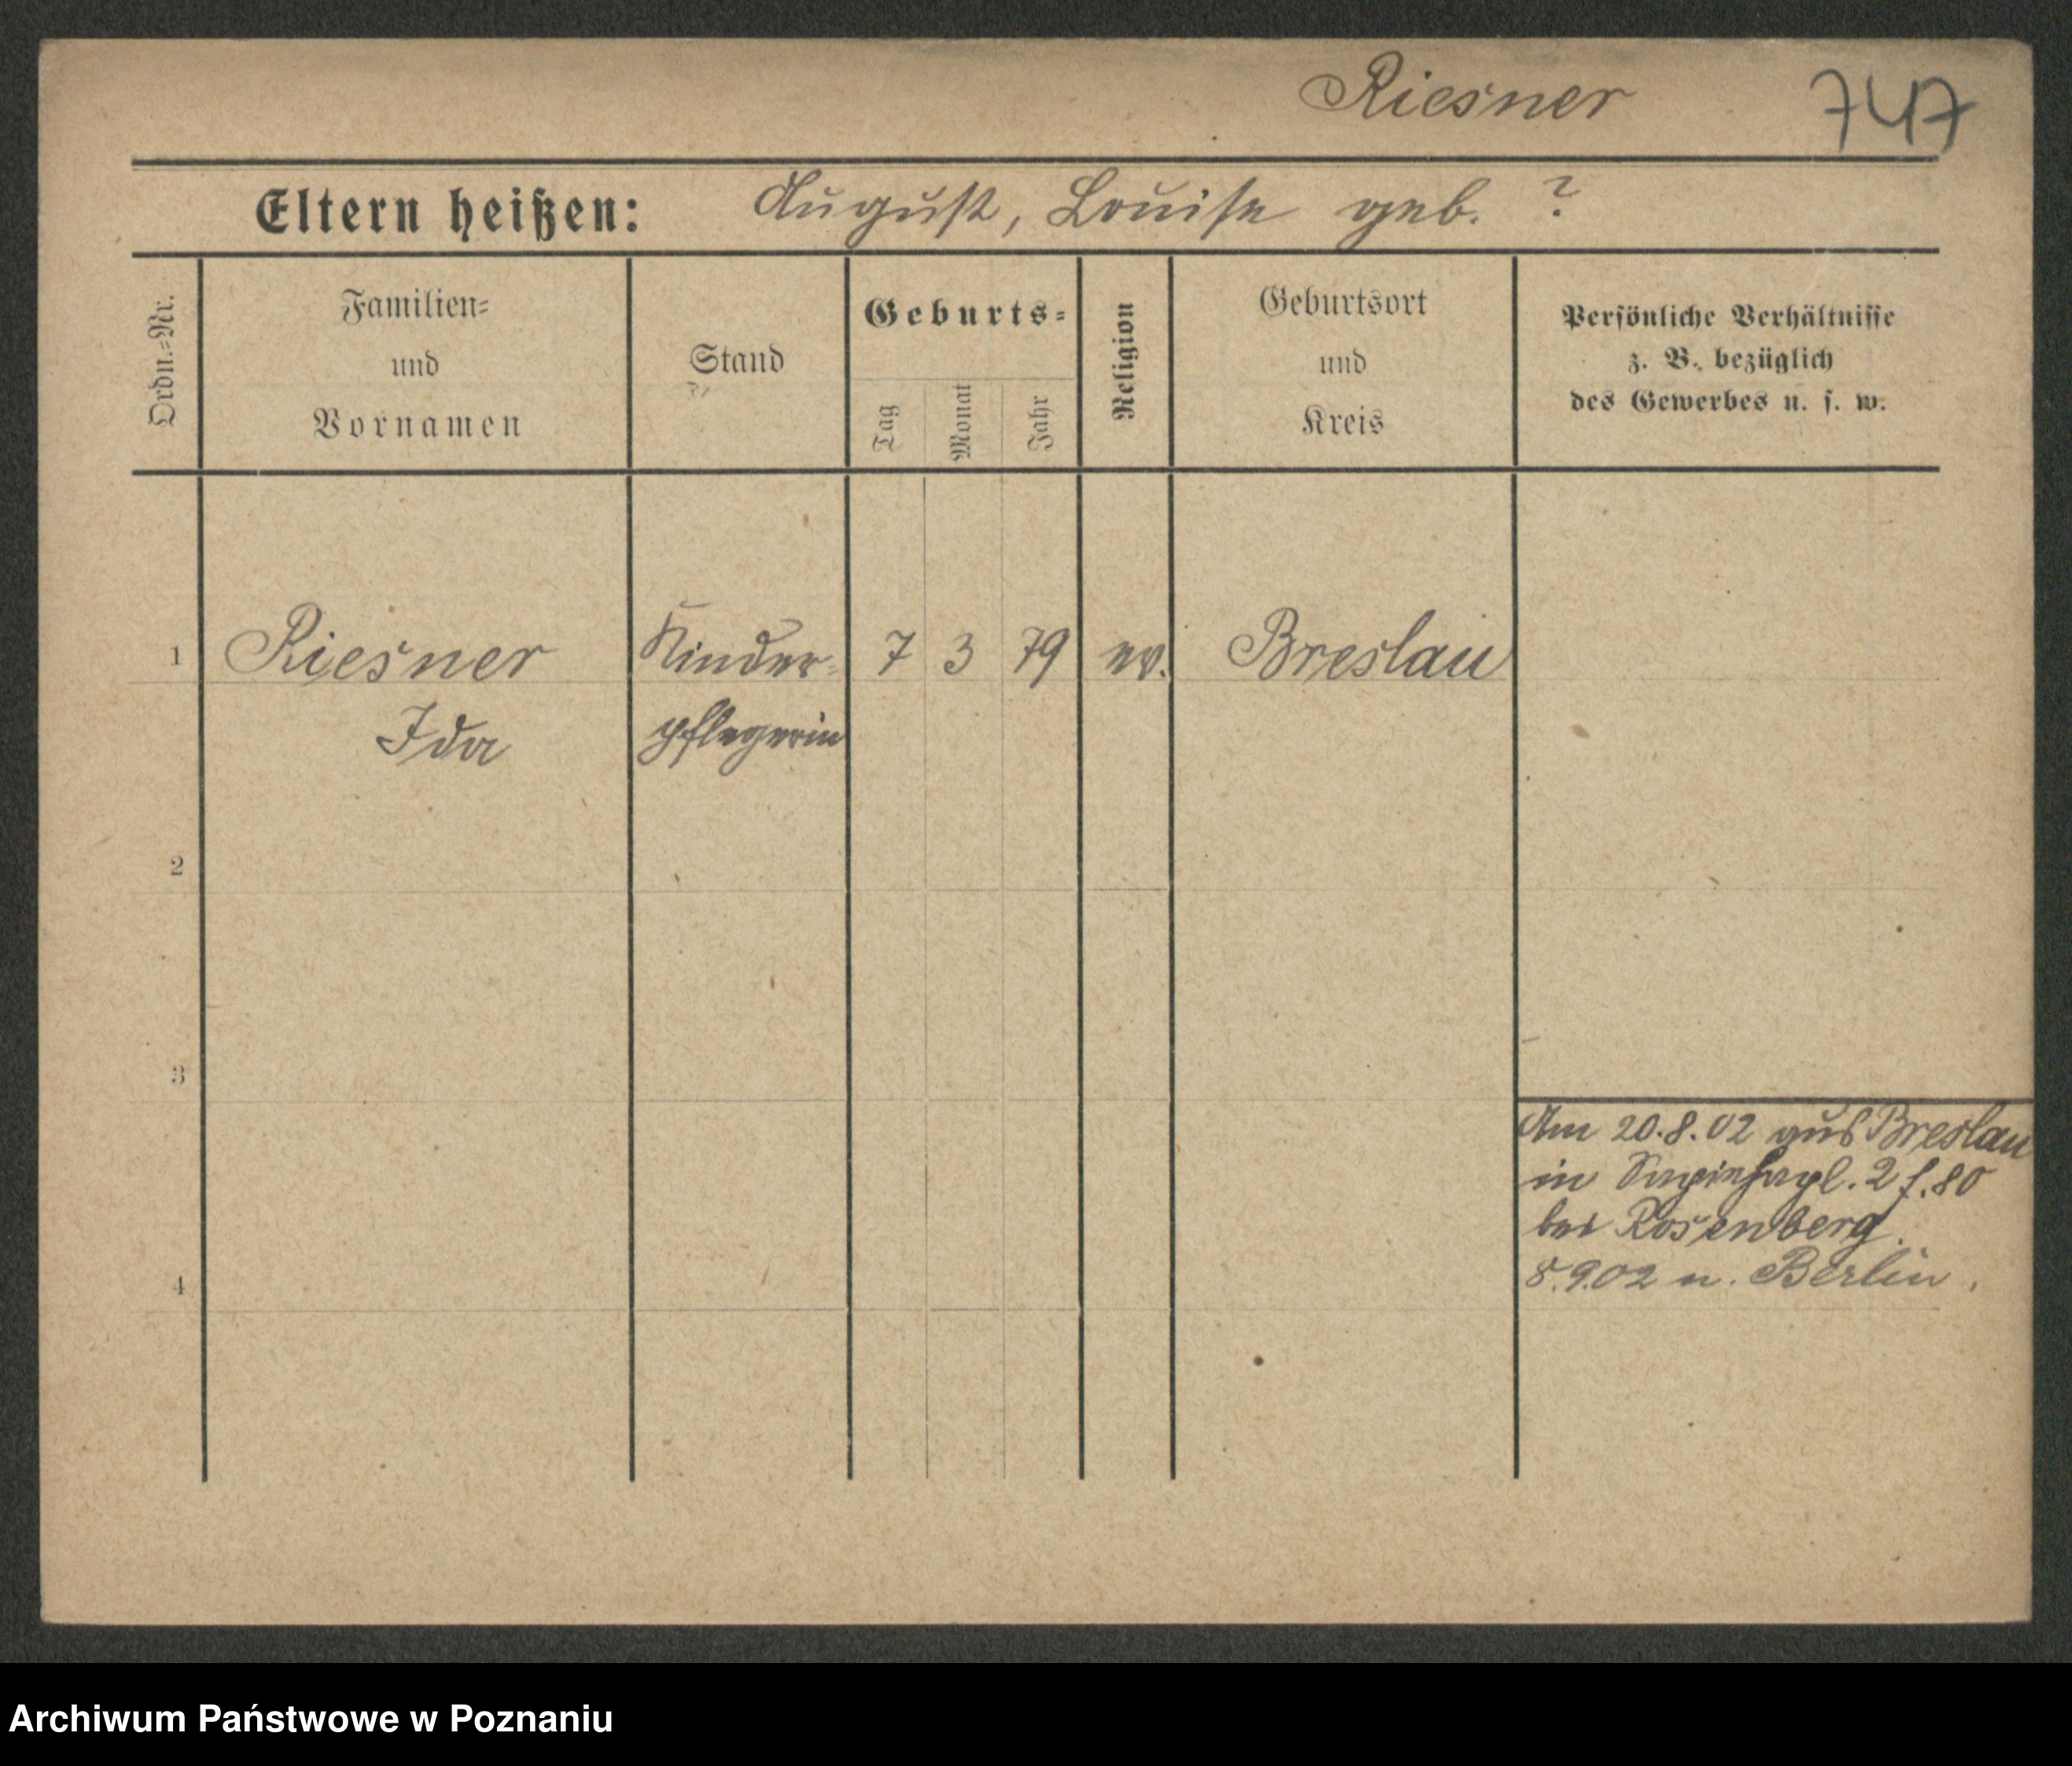 Riesner 747
Eltern heißen: August, Louise geb. ?
Ordn.-Nr.
Familien-
und
Vornamen
Stand
Geburts-
Tag
Monat
Jahr
Religion
Geburtsort
und
Kreis
Persönliche Verhältnisse
z. B. bezüglich
des Gewerbes u. s. w.
1 Riesner Kinder- 7 3 79 ev. Breslau
Ida pflegerin
2
3
Am 20.8.02 aus Breslau
in
bei Rosenberg.
4
8.9.02 n. Berlin.
Archiwum Państwowe w Poznaniu